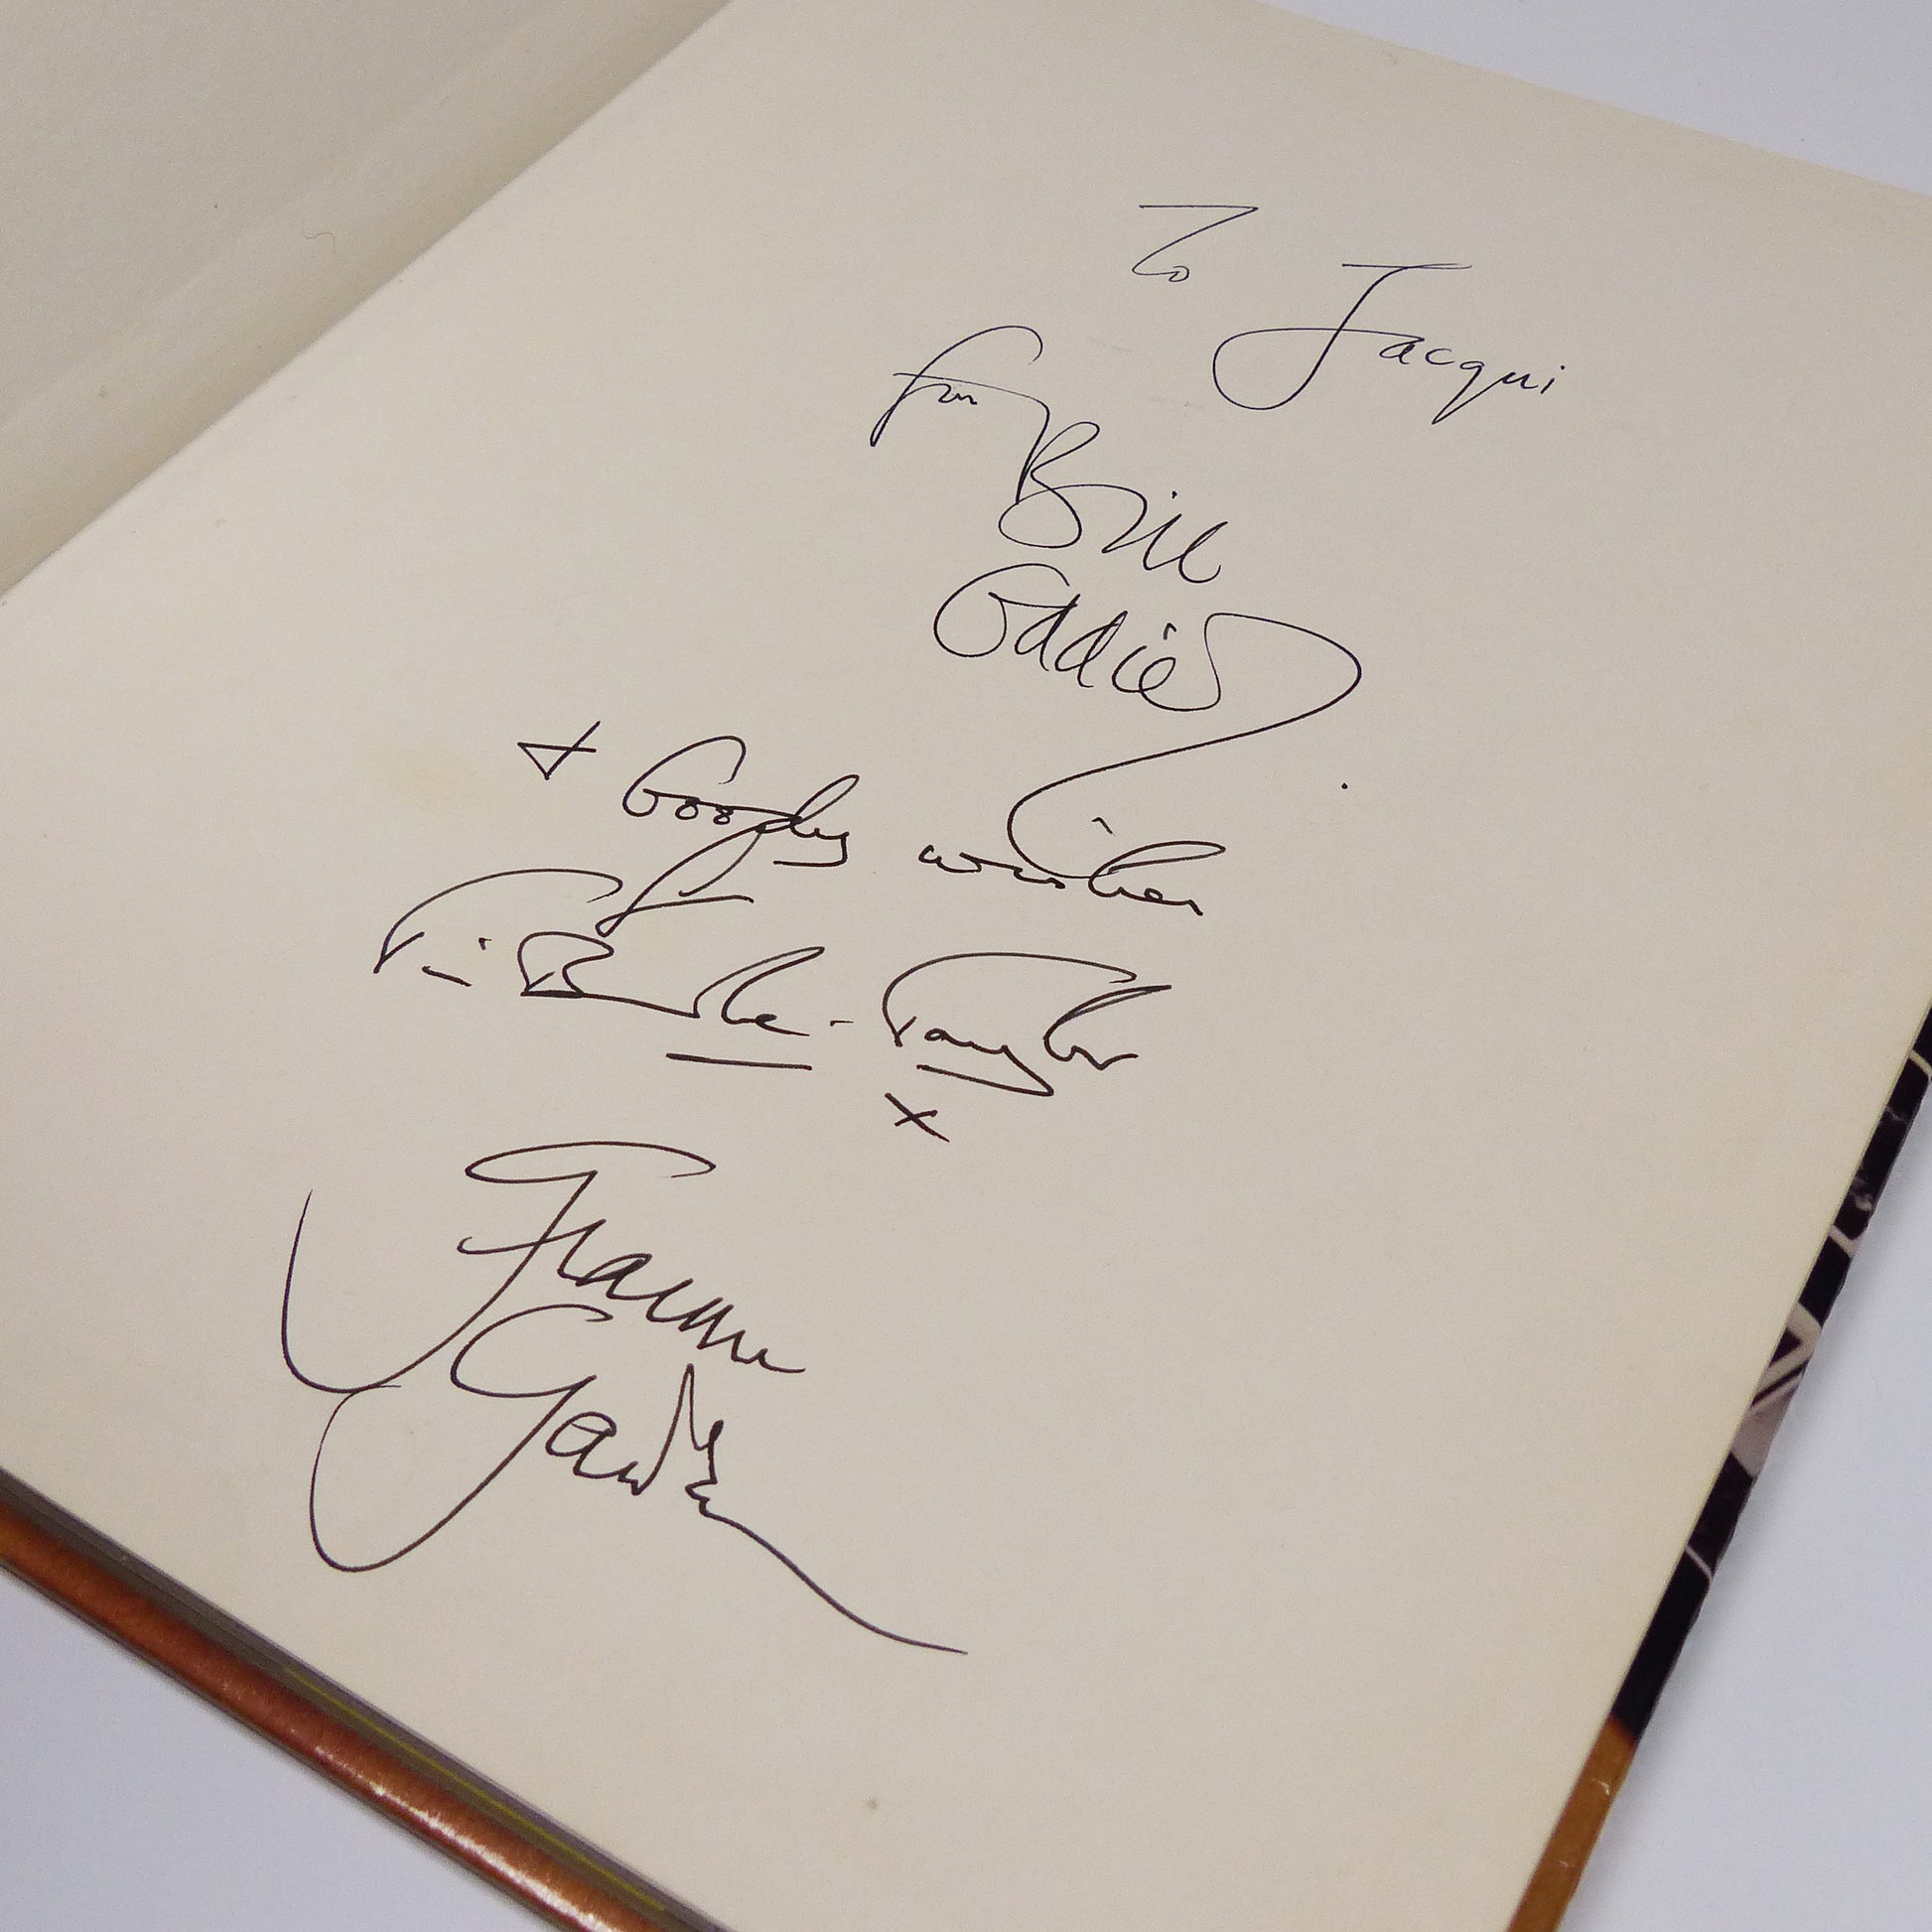 To Jacqui
from
Bill
Oddie
+ Goody wishes
from
Tim Brooke-Taylor
x
Graeme
Garden